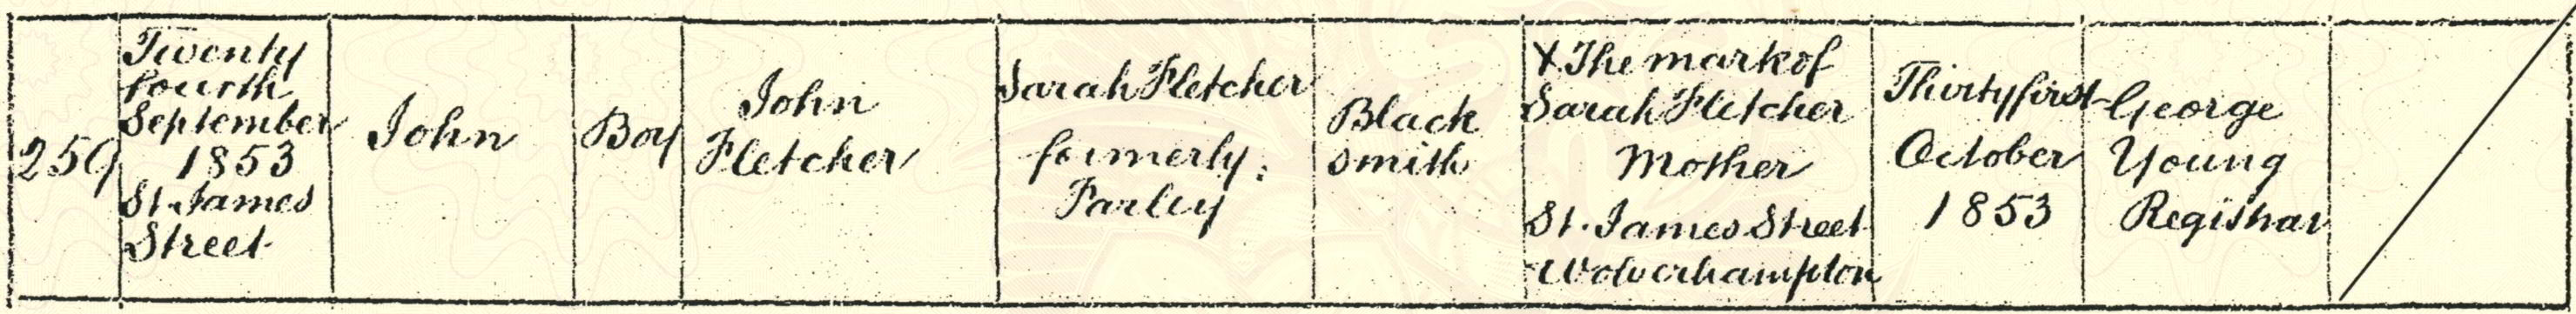 259
Twenty
fourth
September
1853
St. James
Street
John
Boy
John
Fletcher
Sarah Fletcher
formerly
Farley
Black
smith
X The mark of
Sarah Fletcher
Mother
St. James Street
Wolverhampton
Thirty first
October
1853
George
Young
Registrar